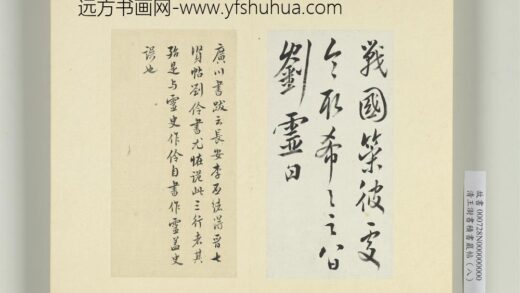 远方书画网-www.yfshuhua.com
戰國策彼灵
之所希之言公
劉靈白
廣川書跋云長安李丕緒得晉七
賢帖劉伶書尤怪詭此三行者其
殆是与靈史作伶自書作靈蓋史
誤也
故書 000728N000000000
清王澍書積書巖帖（八）